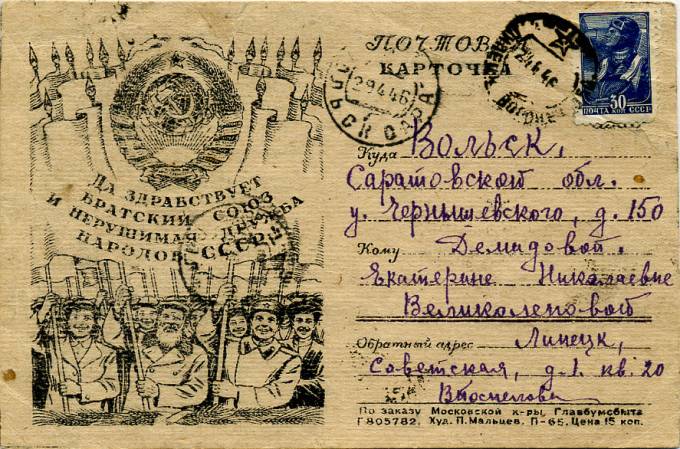 ДА ЗДРАВСТВУЕТ
БРАТСКИЙ СОЮЗ
И НЕРУШИМАЯ ДРУЖБА
НАРОДОВ СССР!
ПОЧТОВ
КАРТОЧКА
29 4 46
ВОЛЬСК САРА
30
ПОЧТА СССР
Куда Вольск,
Саратовской обл.
у. Чернышевского, д. 150
Кому Демидовой.
Екатерине Николаевне
Великолеповой
Обратный адрес Липецк,
Советская, д. 1. кв. 20
По заказу Московской к-ры, Главбумсбыта
Г805782. Худ. П. Мальцев. П-65. Цена 15 коп.